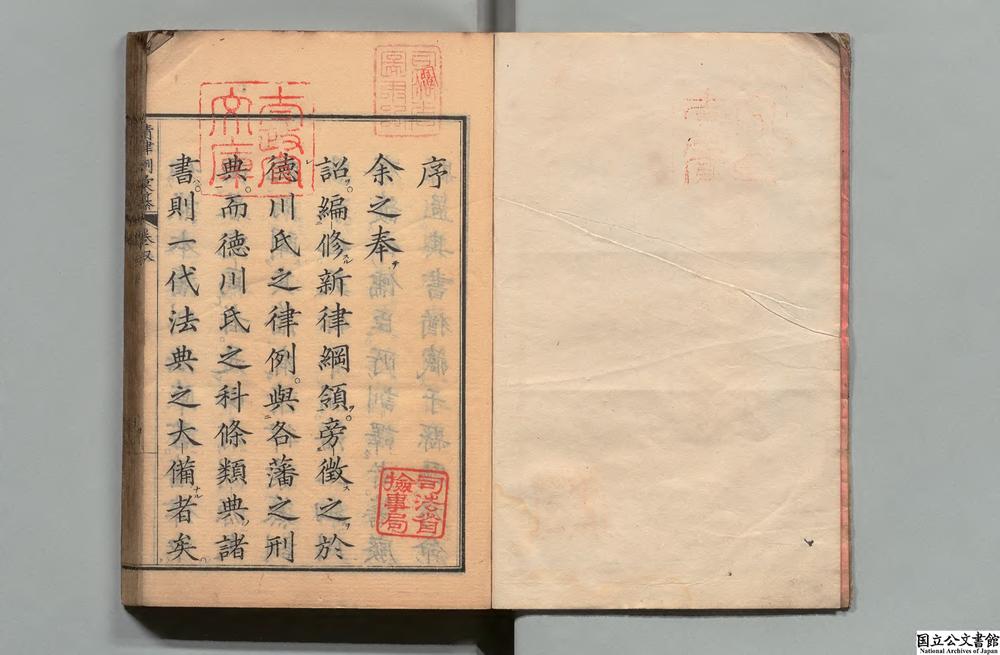 序
余之奉
詔編修新律綱領。旁徴之於
德川氏之律例。與各藩之刑
典。而德川氏之科條類典諸
書則一代法典之大備者矣。
太政官
文庫
司法省
檢事局
国立公文書館
National Archives of Japan